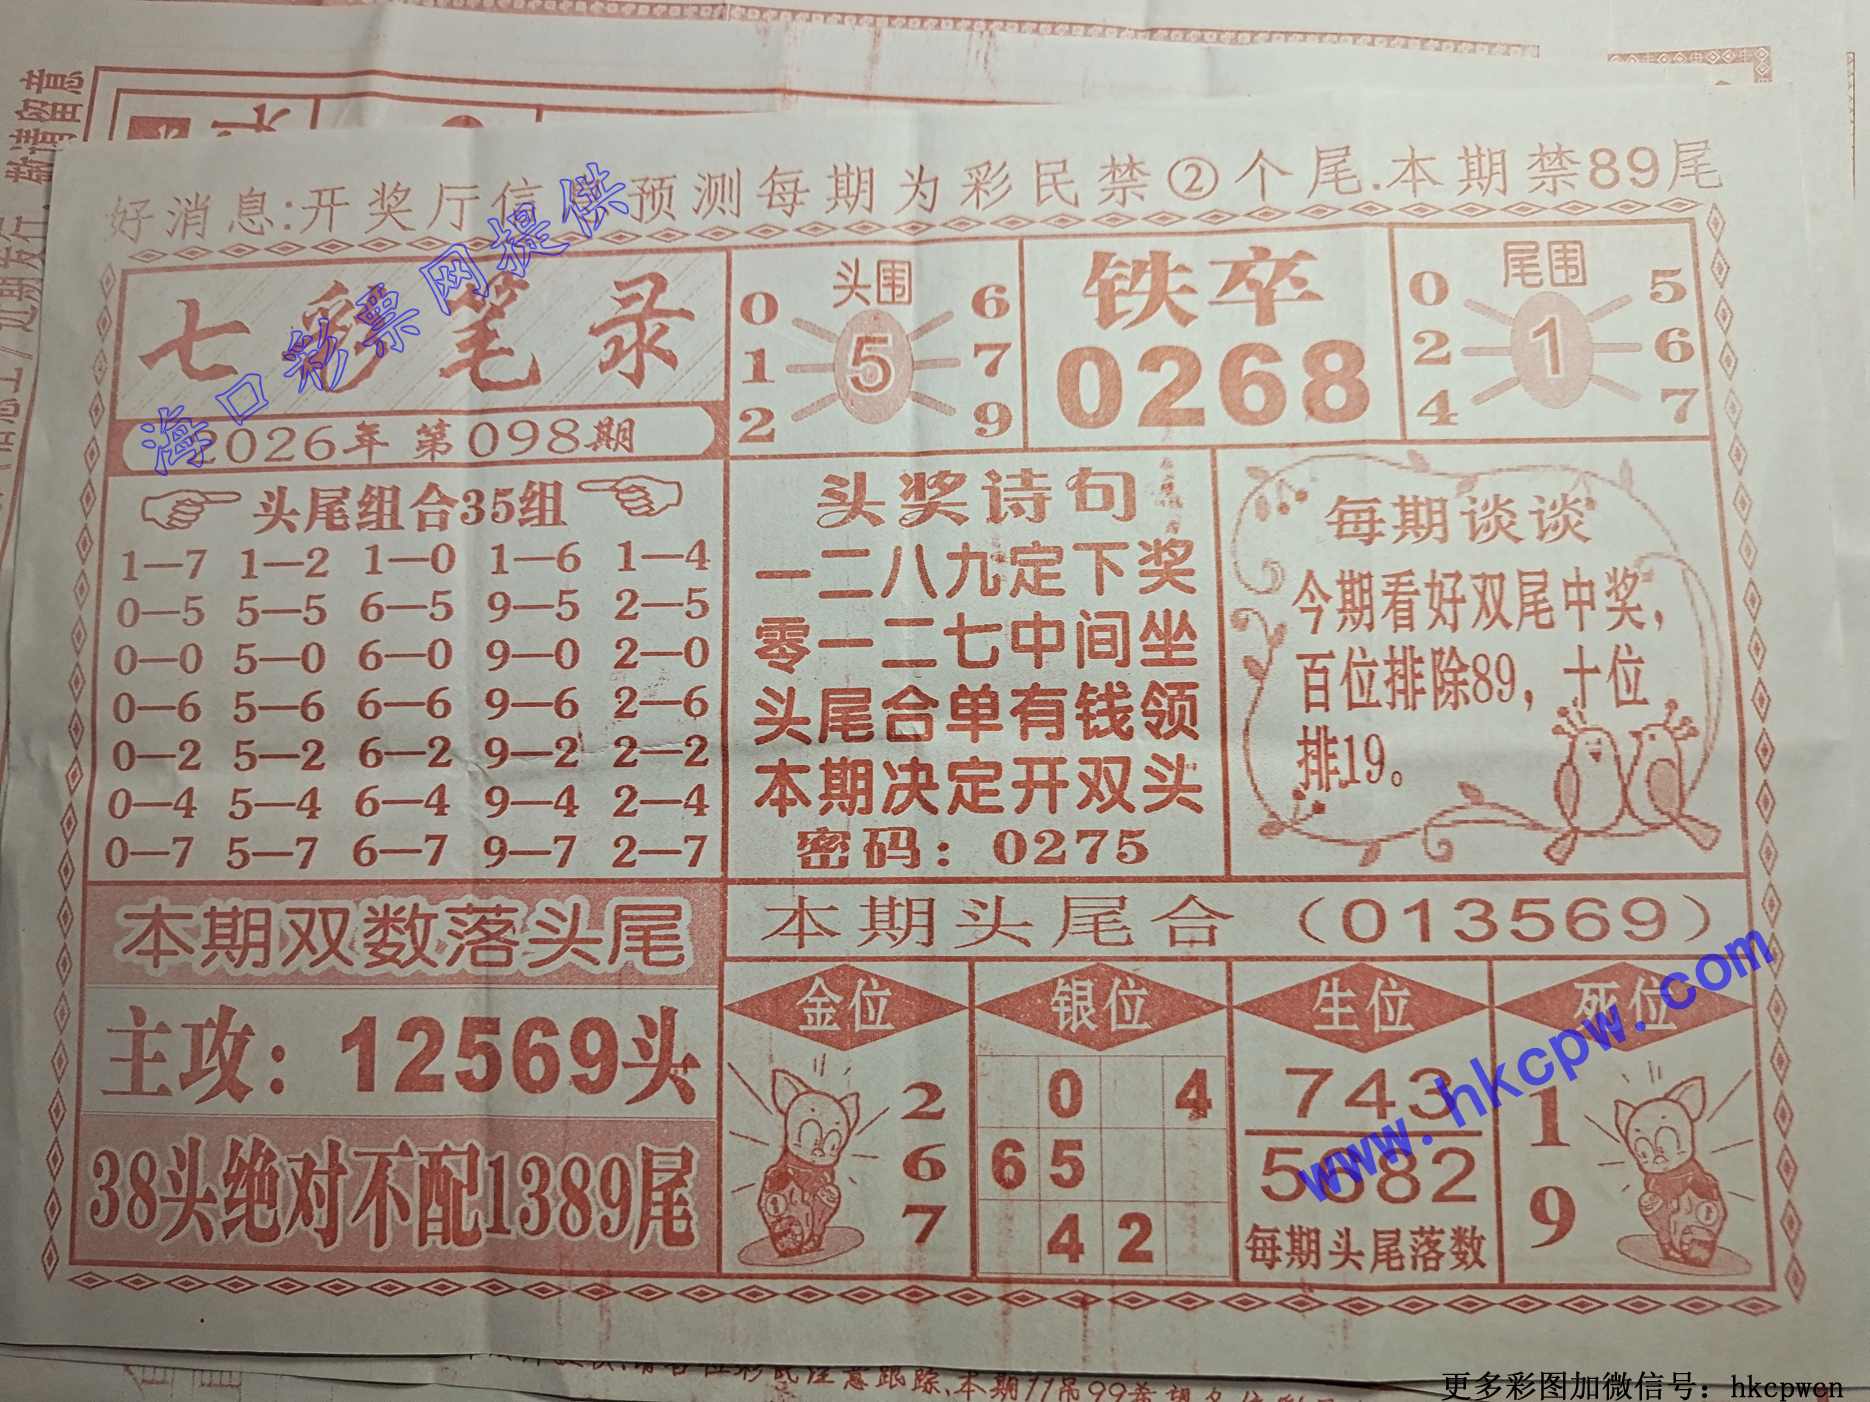 好消息:开奖厅信息预测每期为彩民禁②个尾.本期禁89尾
海口彩票网提供
七彩笔录
2026年 第098期
头围
0 6
1 5 7
2 9
铁卒
0268
尾围
0 5
2 1 6
4 7
头尾组合35组
1—7 1—2 1—0 1—6 1—4
0—5 5—5 6—5 9—5 2—5
0—0 5—0 6—0 9—0 2—0
0—6 5—6 6—6 9—6 2—6
0—2 5—2 6—2 9—2 2—2
0—4 5—4 6—4 9—4 2—4
0—7 5—7 6—7 9—7 2—7
头奖诗句
一二八九定下奖
零一二七中间坐
头尾合单有钱领
本期决定开双头
密码：0275
每期谈谈
今期看好双尾中奖，
百位排除89，十位
排19。
本期双数落头尾
主攻：12569头
38头绝对不配1389尾
本期头尾合（013569）
金位
2
6
7
银位
0 4
6 5
4 2
生位
743
5682
每期头尾落数
死位
1
9
www.hkcpw.com
跟踪,本期11吊99
更多彩图加微信号：hkcpwcn